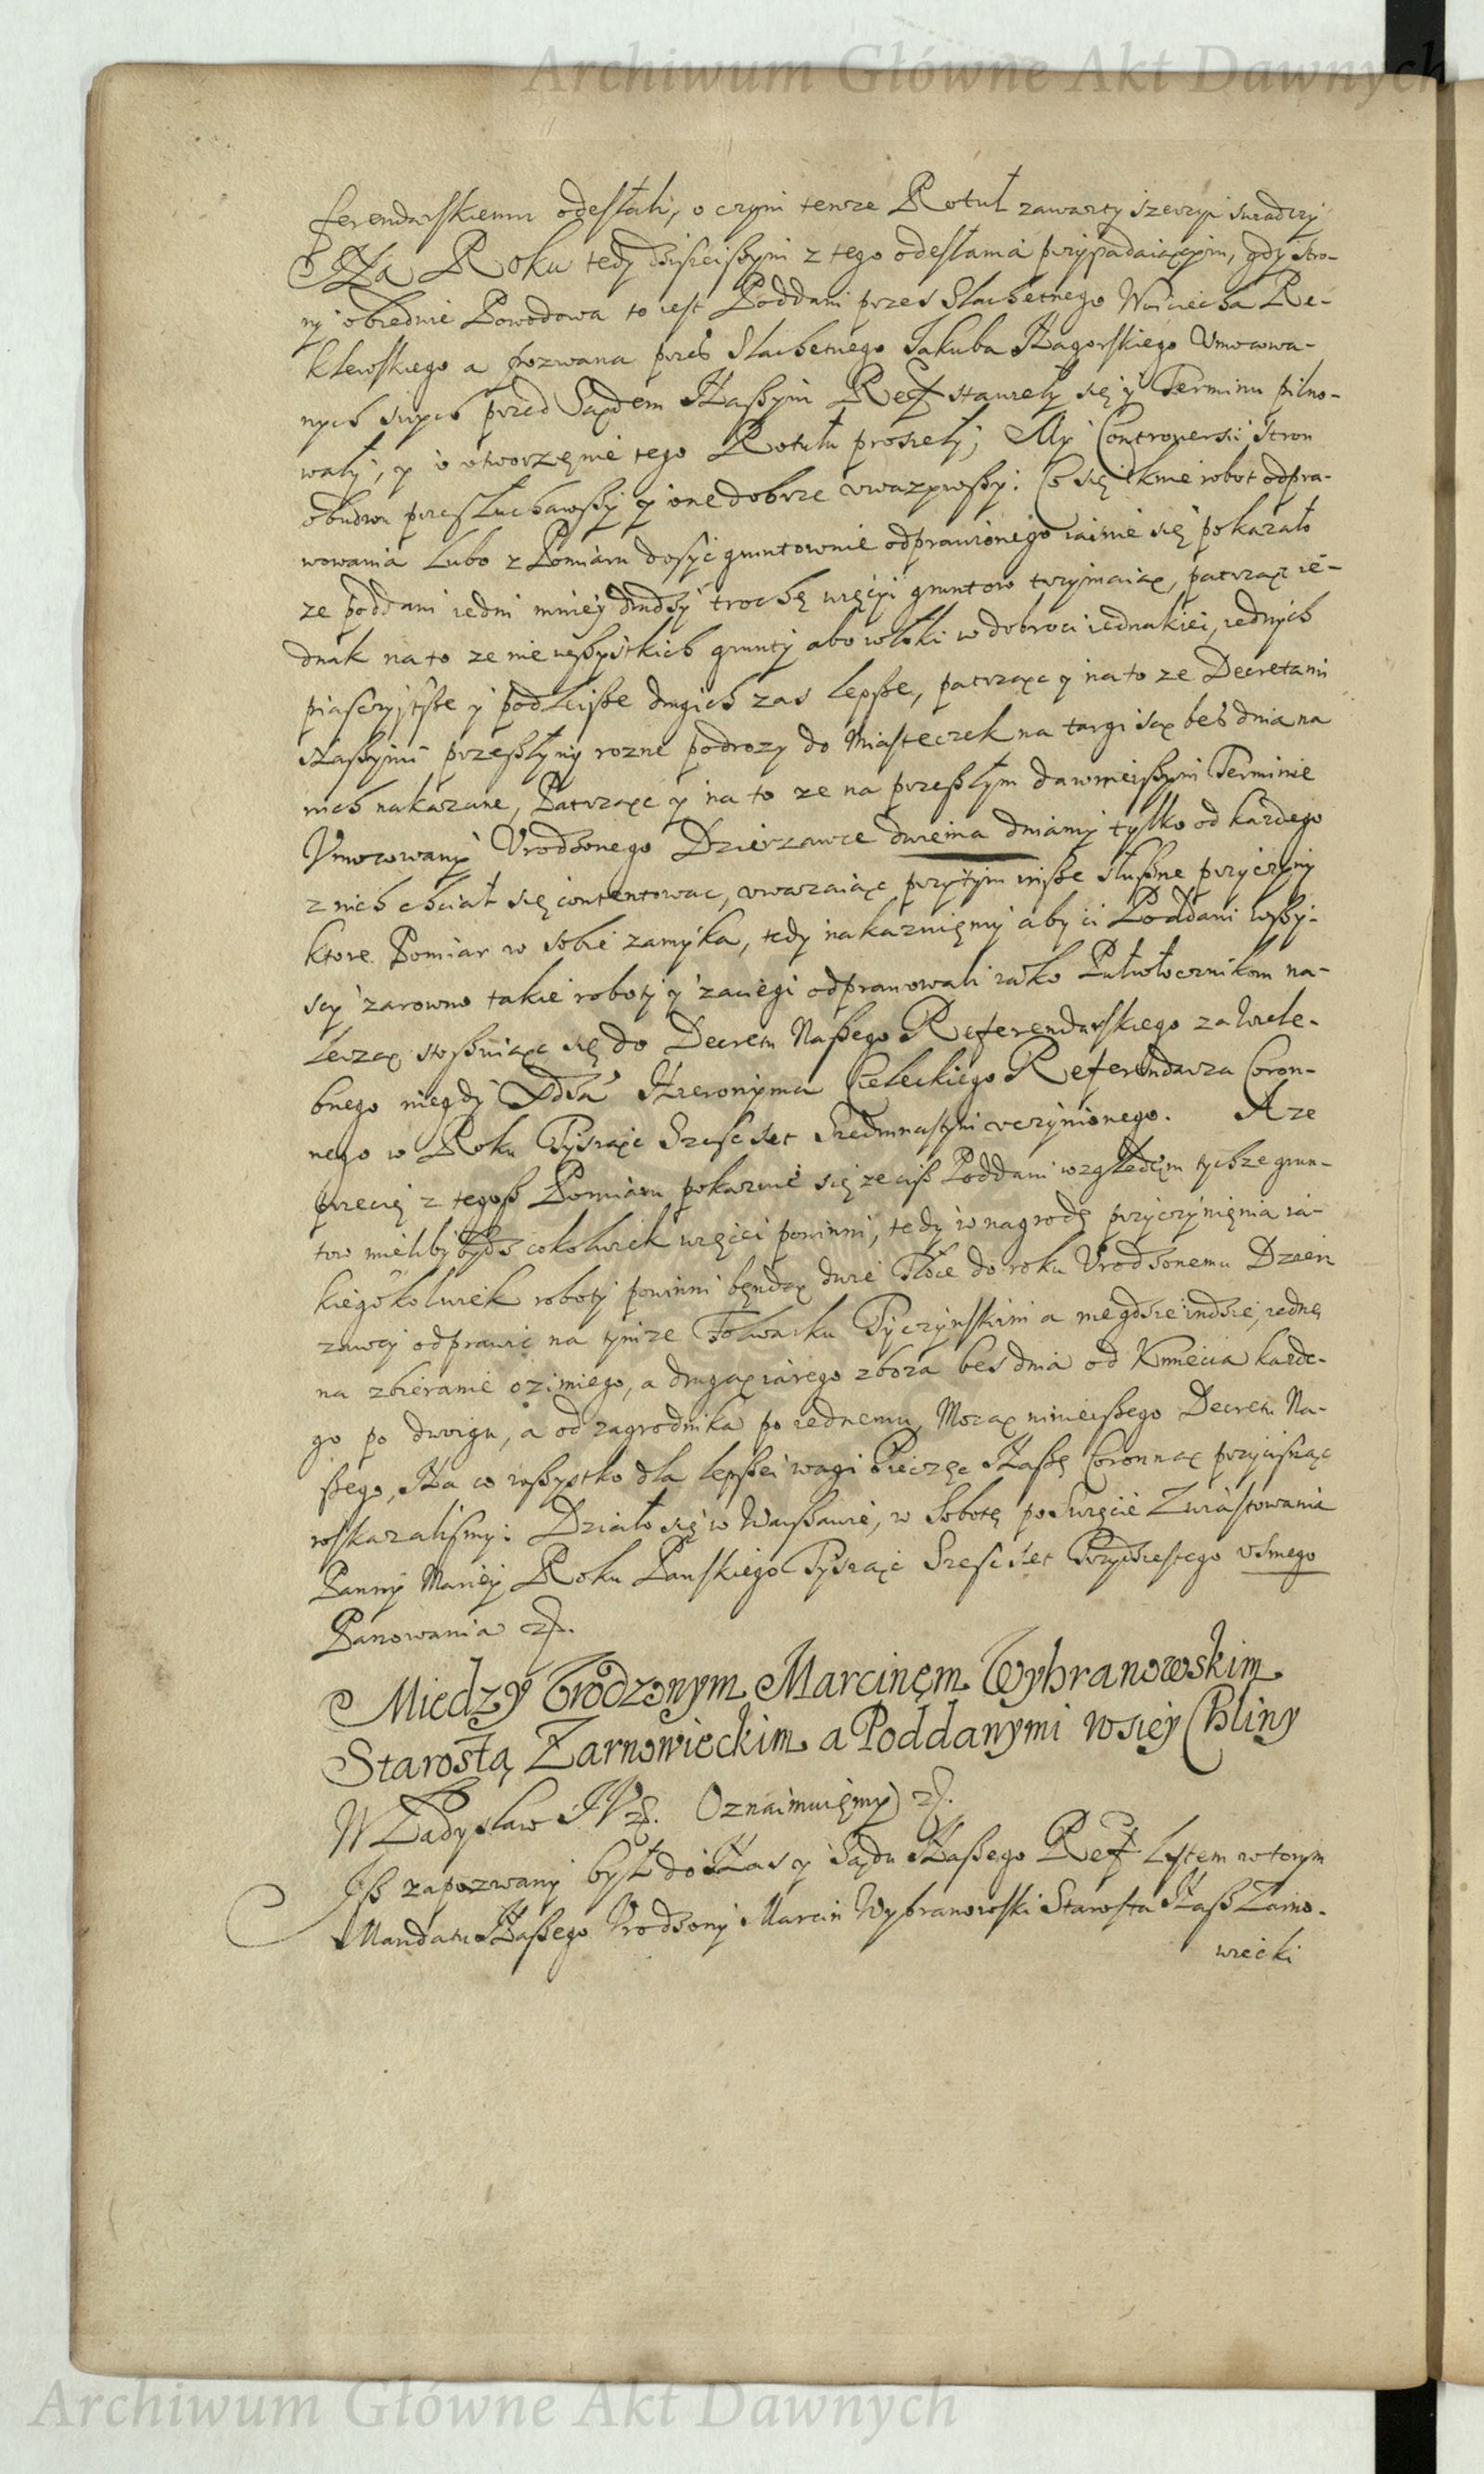 Archiwum Główne Akt Dawnych
ferendarskiemu odesłali, o czym tenze Rotuł zawarty szerzyi swiadczy
Na Roku tedy dzisieiszym z tego odesłania przypadaiącym, gdy stro-
ny obiedwie Powodowa to iest Poddani przes Slachetnego Woiciecha Re-
klewskiego a pozwana przes Slachetnego Jakuba Zagorskiego Vmocowa-
nych swych przed Sądem Naszym Ref stawieły się y Terminu pilno-
wały, y o otworzęnie tego Rotułu prosieły; My Controversii stron
obudwu przesłuchawszy y one dobrze vwazywszy. Co się tknie robot odpra-
wowania lubo z Pomiaru dosyć gruntownie odprawionego iasnie się pokazało
ze poddani iedni mniey drudzy trochę więcyi gruntow trzymaią, patrząc ie-
dnak na to ze nie wszystkich grunty abo włoki w dobroci iednakiei, iednych
piasczystsze y podleisze drugich zas lepsze, patrząc y na to ze Decretami
Naszymi przeszłymi rozne podrozy do Miasteczek na targi są bes dnia na
nich nakazane, Patrząc y na to ze na przeszłym dawnieiszym Terminie
Vmocowany Vrodzonego Dzierzawce dwiema dniamy tylko od kazdego
z nich chciał się contentowac, vwazaiąc przytym insze słuszne przyczyny
ktore Pomiar w sobie zamyka, tedy nakazuięmy aby ci Poddani wszy-
scy zarowno takie roboty y zaciegi odprawowali iako Pułwłocznikom na-
lezą stosuiąc się do Decretu Naszego Referendarskiego za Wiele-
bnego niegdy Xdza Hieronyma Cieleckiego Referendarza Coron-
nego w Roku Tysiąc Szesc set Siedmnastym vczynionego. A ze
przecię z tegosz Pomiaru pokazuie się ze cisz Poddani względęm tychze grun-
tow mieliby bydz cokolwiek więcei powinni, tedy w nagrodę przyczynięnia ia-
kiegokolwiek roboty powinni będą dwie Tłoce do roku Vrodzonemu Dzier
zawcy odprawic na tymze Folwarku Tyczynskim a niegdzie indzie, iednę
na zbieranie ozimiego, a drugą iarego zboza bes dnia od Kmiecia kazde-
go po dwoigu, a od zagrodnika po iednemu, Mocą ninieiszego Decretu Na-
szego, Na co wszystko dla lepszei wagi Pieczęc Naszę Coronną przycisnąc
roskazalismy. Działo się w Warszawie, w Sobotę po Swięcie Zwiastowania
Panny Mariey Roku Panskiego Tysiąc Szesc set Trzydziestego osmego
Panowania etc.
Miedzy Vrodzonym Marcinęm Wybranowskim
Starostą Zarnowieckim a Poddanymi wsiey Chliny
Władysław IV etc. Oznaimuięmy etc.
Isz zapozwany był do Nas y Sądu Naszego Ref Lystem wtorym
Mandatu Naszego Vrodzony Marcin Wybranowski Starosta Nasz Zarno-
wiecki
Archiwum Główne Akt Dawnych